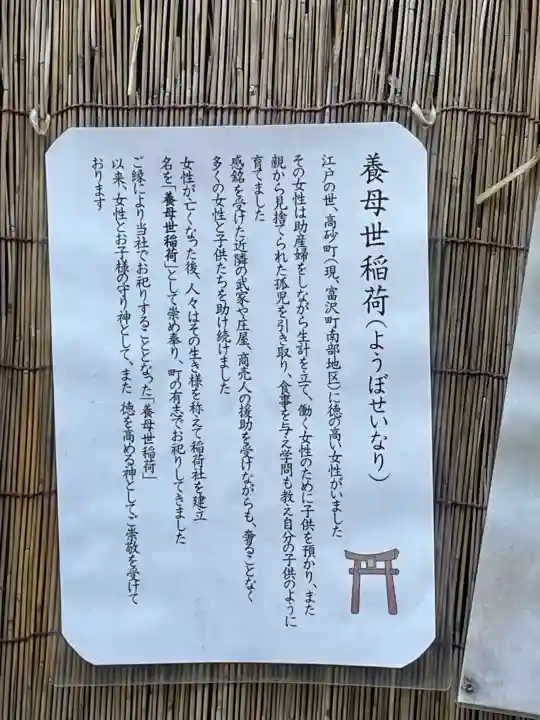 養母世稲荷(ようぼせいなり)
江戸の世、高砂町(現、富沢町南部地区)に徳の高い女性がいました
その女性は助産婦をしながら生計を立て、働く女性のために子供を預かり、また
親から見捨てられた孤児を引き取り、食事を与え学問も教え自分の子供のように
育てました
感銘を受けた近隣の武家や庄屋、商売人の援助を受けながらも、奢ることなく
多くの女性と子供たちを助け続けました
女性が亡くなった後、人々はその生き様を称えて稲荷社を建立
名を「養母世稲荷」として崇め奉り、町の有志でお祀りしてきました
ご縁により当社でお祀りすることとなった「養母世稲荷」
以来、女性とお子様の守り神として、また 徳を高める神としてご崇敬を受けて
おります